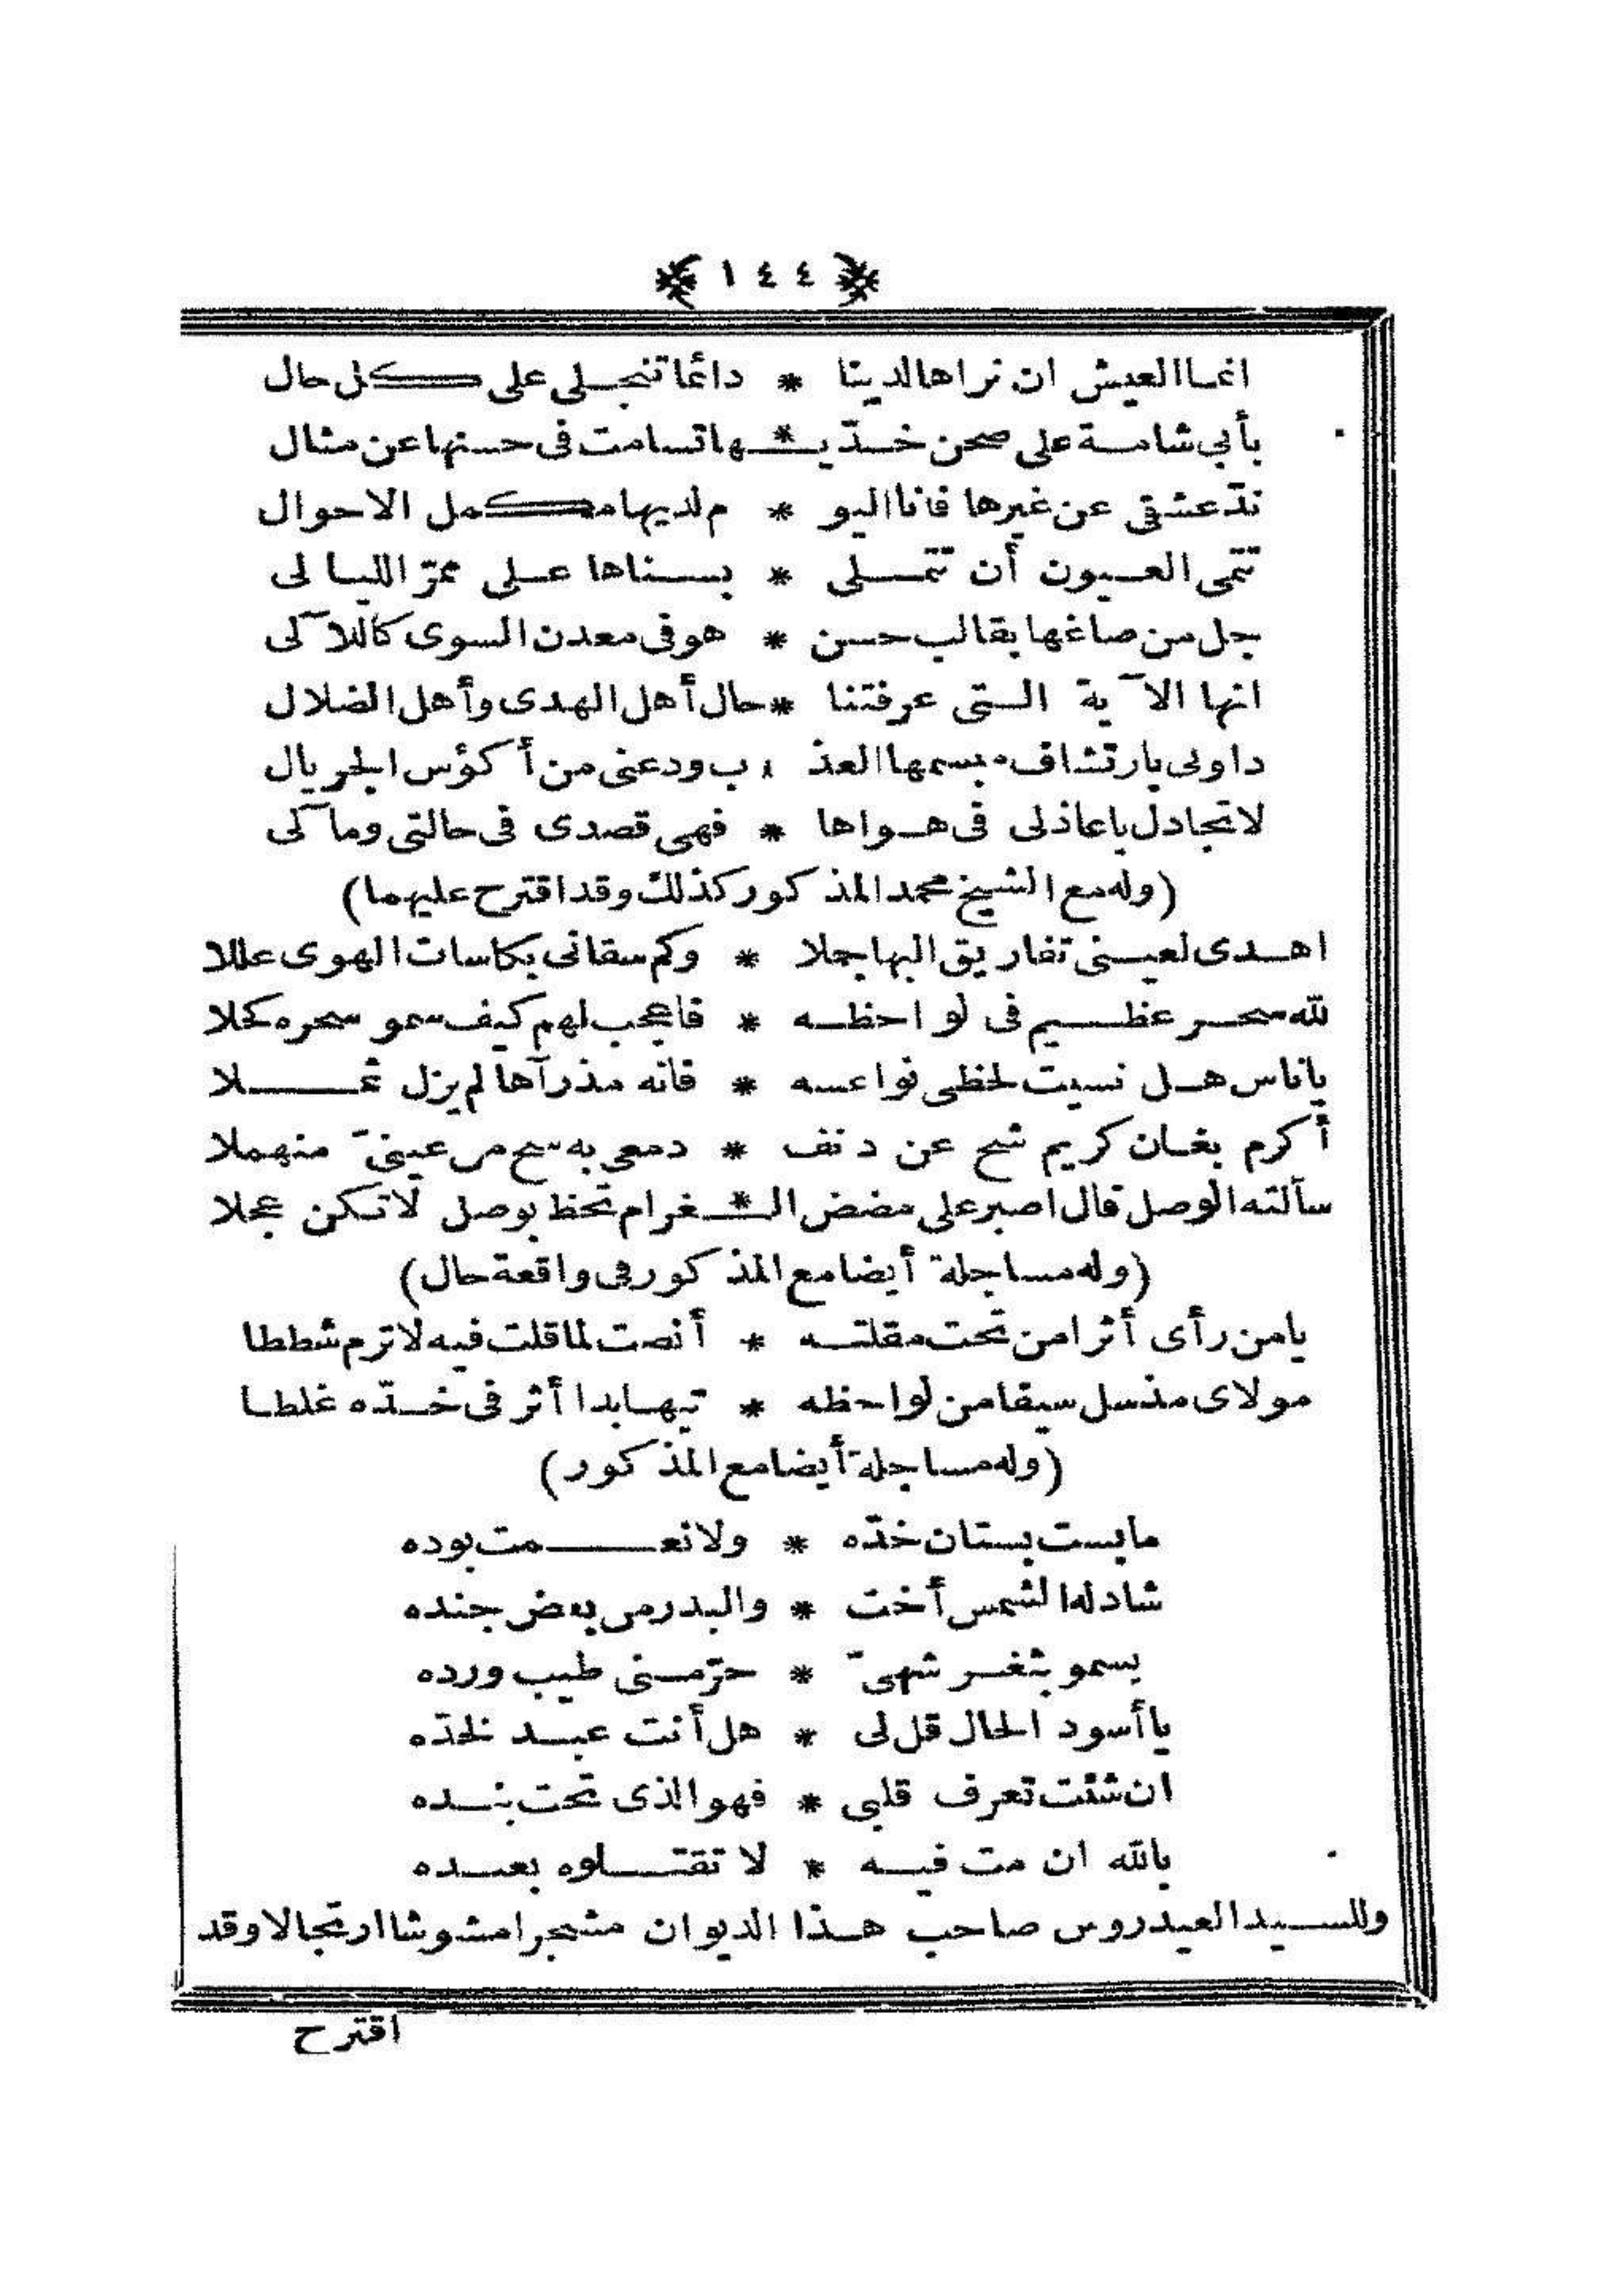 ﴿ ١٤٤ ﴾
انما العيش ان نراها لدينا * دائما تنجلي على كل حال
بأبي شامة على صحن خدّيـ * ها تسامت فى حسنها عن مثال
ندّ عشقى عن غيرها فانا اليو * م لديها مكمل الاحوال
تتمى العيون أن تتملى * بسناها على ممرّ الليالى
جل من صاغها بقالب حسن * هو فى معدن السوى كاللآلى
انها الآية التى عرفتنا * حال أهل الهدى وأهل الضلال
داونى بارتشاف مبسمها العذ * ب ودعنى من أكؤس الجريال
لا تجادل ياعاذلى فى هواها * فهى قصدى فى حالتى ومآلى
(وله مع الشيخ محمد المذكور كذلك وقد اقترح عليهما)
اهدى لعينى تفاريق البها جملا * وكم سقانى بكاسات الهوى عللا
لله سحر عظيم فى لواحظه * فاعجب لهم كيف سمو سحره كحلا
ياناس هل نسيت لحظى نواعسه * فانه مذ رآها لم يزل ثملا
أكرم بغان كريم شح عن دنف * دمعى به سح من عينىّ منهملا
سألته الوصل قال اصبر على مضض الـ * غرام تحظ بوصل لا تكن عجلا
(وله مساجلة أيضا مع المذكور فى واقعة حال)
يامن رأى أثرا من تحت مقلته * أنصت لما قلت فيه لا ترم شططا
مولاى مذ سل سيفا من لواحظه * تيها بدا أثر فى خدّه غلطا
(وله مساجلة أيضا مع المذكور)
مابست بستان خدّه * ولا نعمت بوده
شادله الشمس أخت * والبدر من بعض جنده
يسمو بثغر شهىّ * حرّمنى طيب ورده
ياأسود الخال قل لى * هل أنت عبد لخدّه
ان شئت تعرف قلبى * فهو الذى تحت بنده
بالله ان مت فيه * لا تقتلوه بعبده
وللسيد العيدروس صاحب هذا الديوان مشجرا مشوشا ارتجالا وقد
اقترح